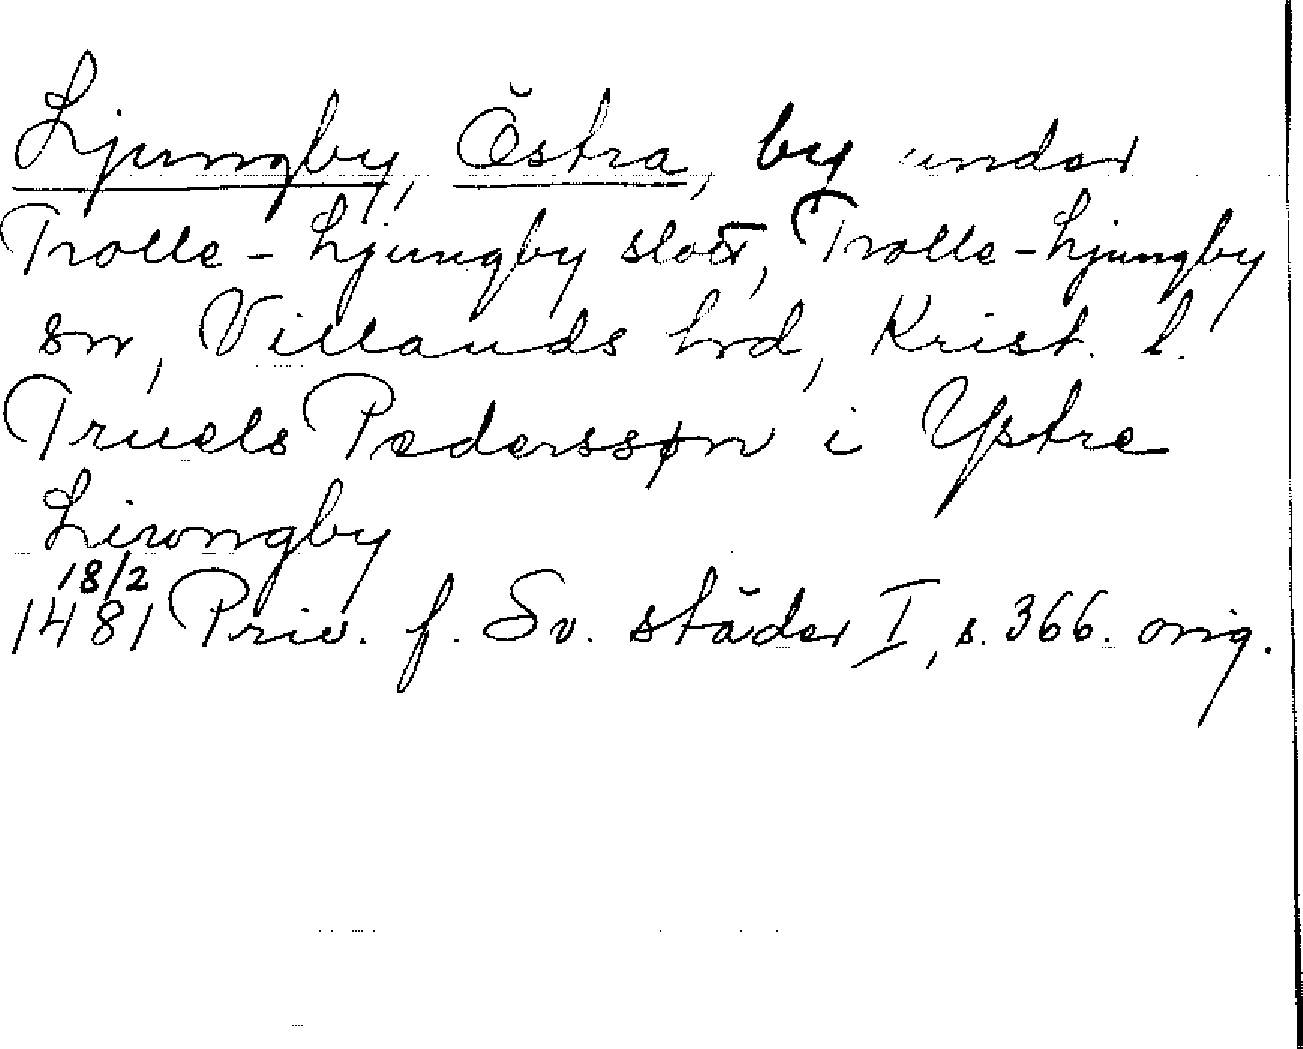 Ljungby, Östra, by under
Trolle-Ljungby slott, Trolle-Ljungby
sn, Villands hrd, Krist. l.
Truels Pederssøn i Ystre
Liwngby
18/2
1481 Priv. f. Sv. städer I, s. 366. orig.